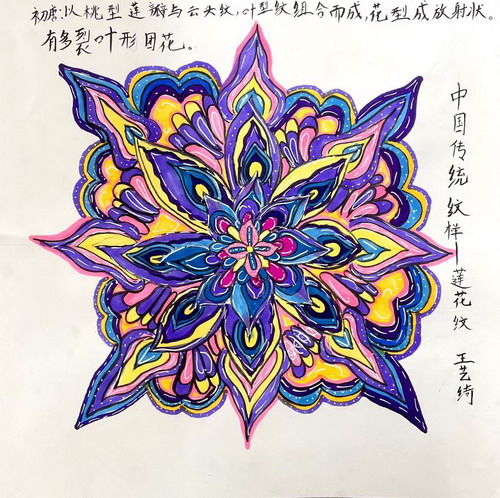 初唐:以桃型莲瓣与云头纹,叶型纹组合而成,花型成放射状。
有多裂叶形团花。
中国传统纹样—莲花纹 王艺绮